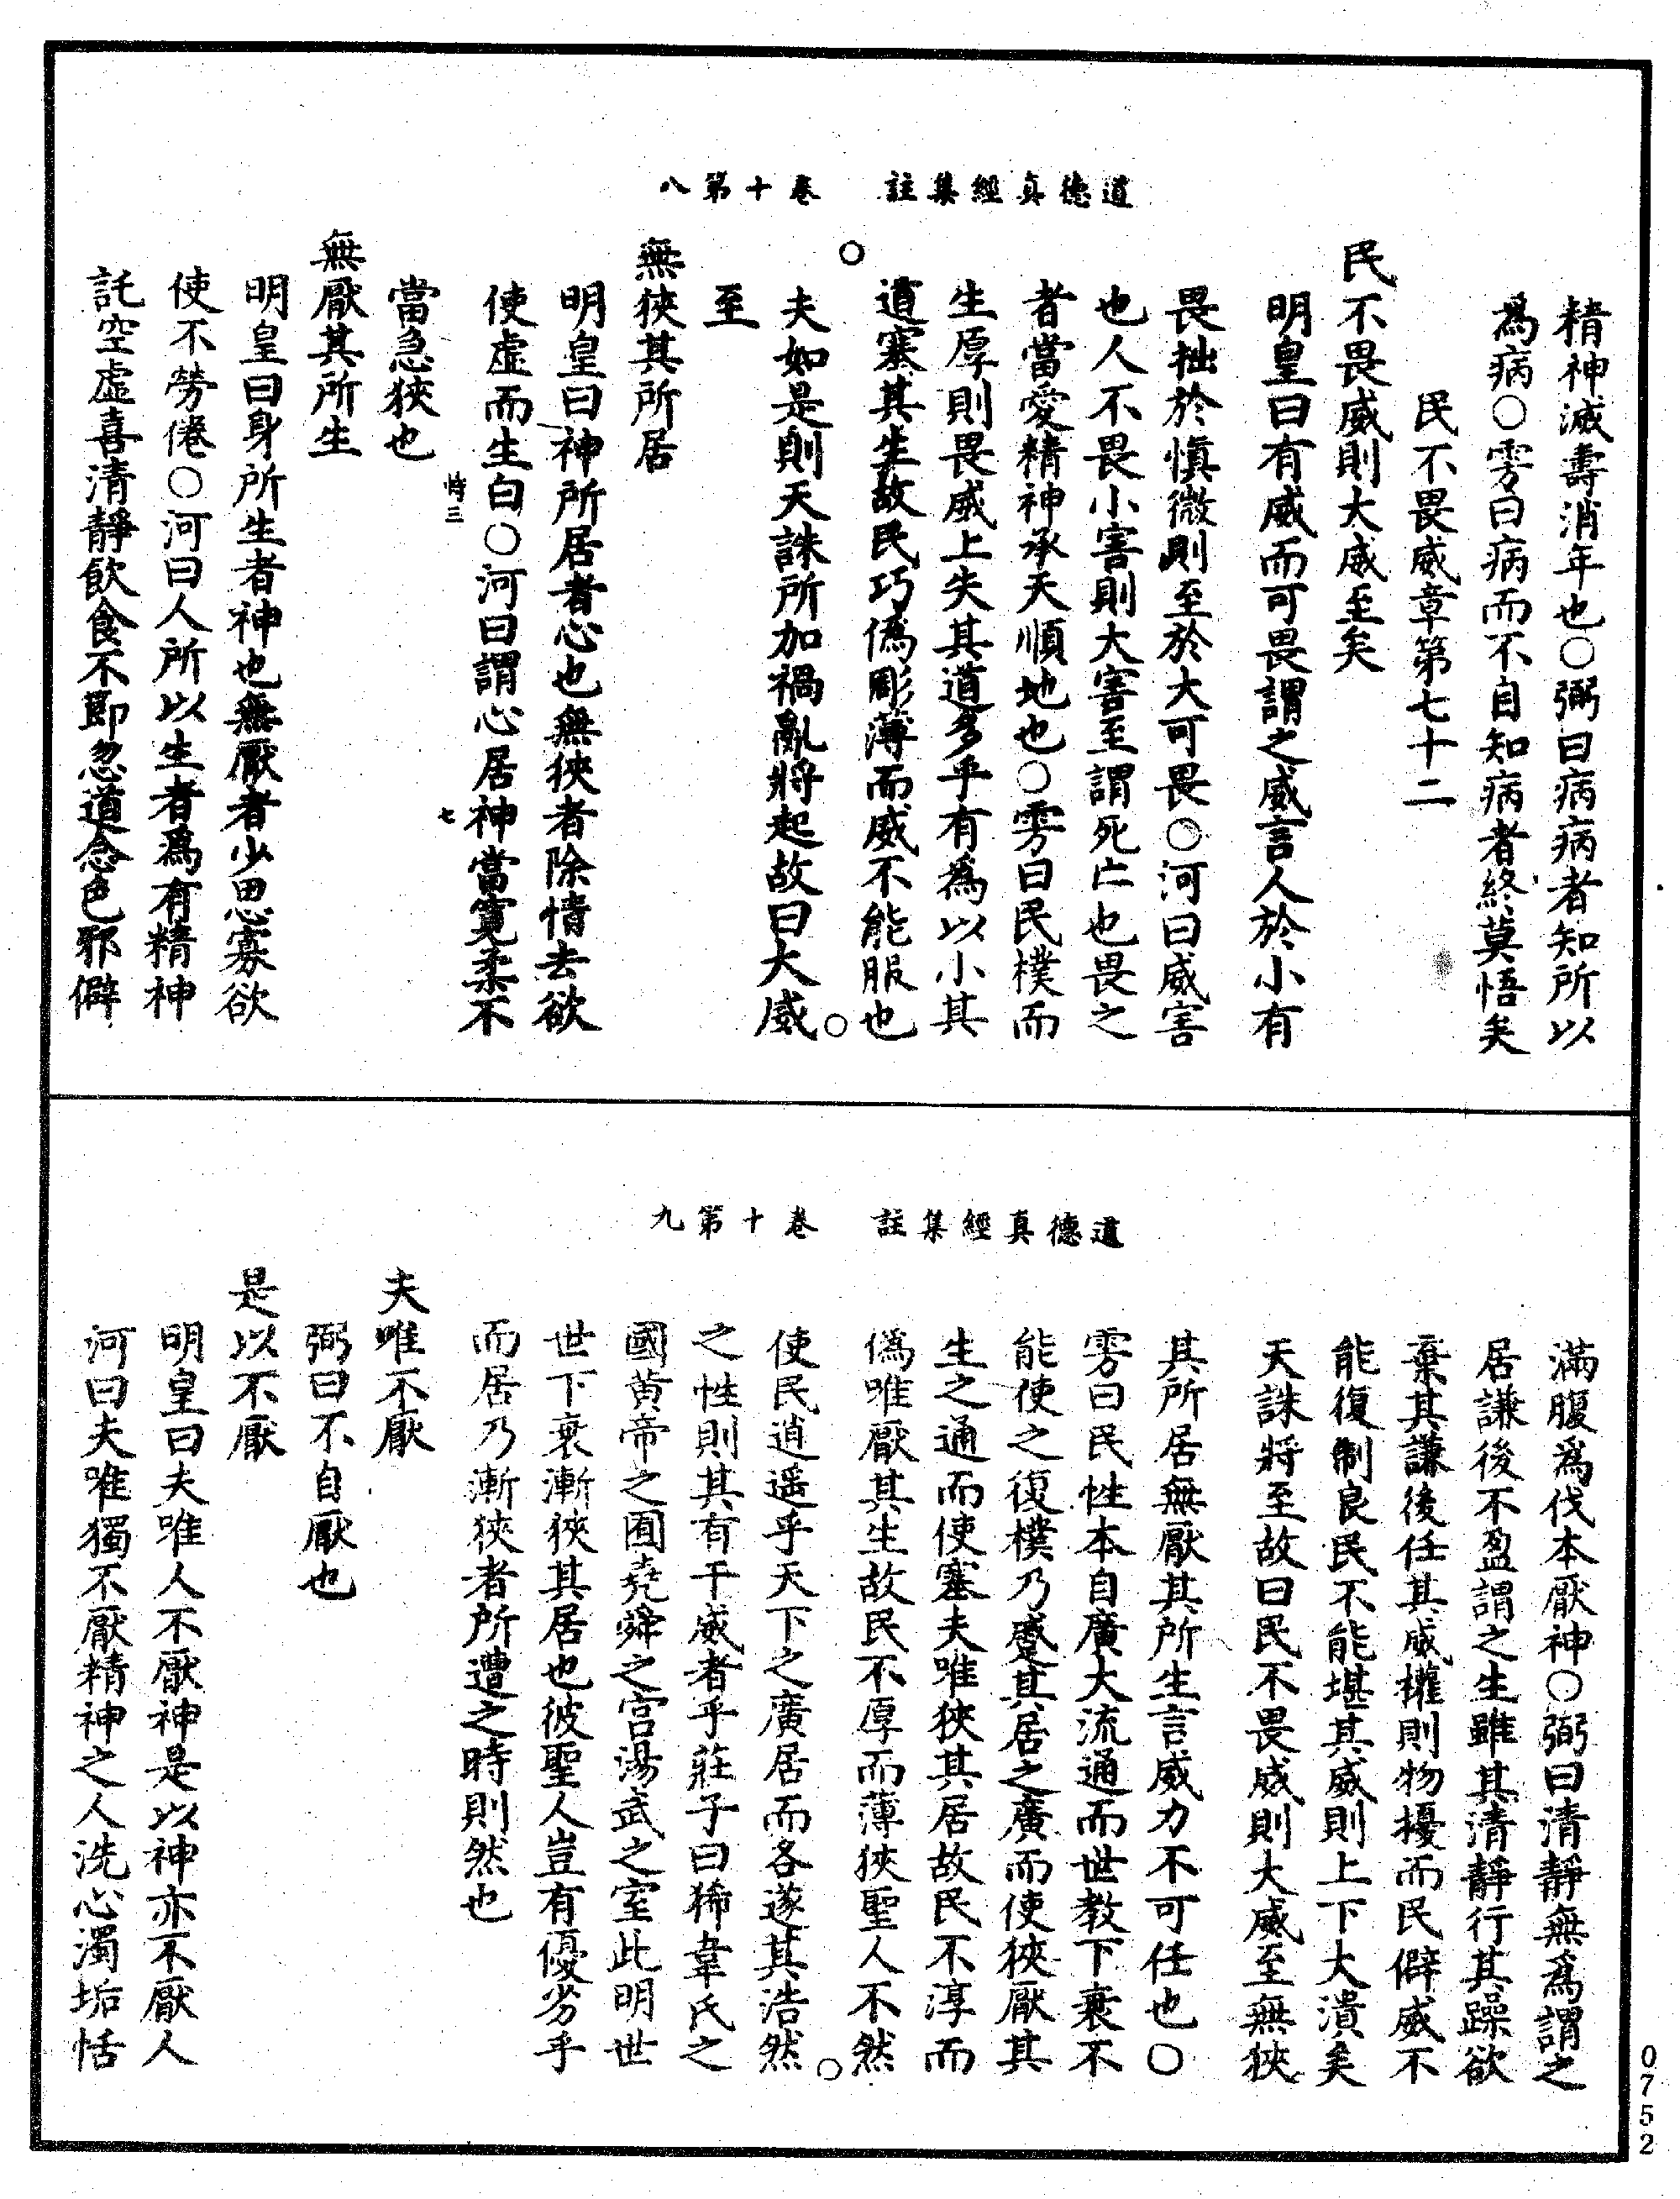 道德真經集註　卷十第八
精神滅壽消年也○弼曰病病者知所以
爲病○雱曰病而不自知病者終莫悟矣
民不畏威章第七十二
民不畏威則大威至矣
明皇曰有威而可畏謂之威言人於小有
畏拙於愼微則至於大可畏○河曰威害
也人不畏小害則大害至謂死亡也畏之
者當愛精神承天順地也○雱曰民樸而
生厚則畏威上失其道多乎有爲以小其
道塞其生故民巧僞彫薄而威不能服也
○
夫如是則天誅所加禍亂將起故曰大威
至
無狹其所居
明皇曰神所居者心也無狹者除情去欲
使虛而生白○河曰謂心居神當寬柔不
恃三　七
當急狹也
無厭其所生
明皇曰身所生者神也無厭者少思寡欲
使不勞倦○河曰人所以生者爲有精神
託空虛喜清靜飲食不節忽道念色邪僻
道德真經集註　卷十第九
滿腹爲伐本厭神○弼曰清靜無爲謂之
居謙後不盈謂之生雖其清靜行其躁欲
棄其謙後任其威權則物擾而民僻威不
能復制良民不能堪其威則上下大潰矣
天誅將至故曰民不畏威則大威至無狹
其所居無厭其所生言威力不可任也○
雱曰民性本自廣大流通而世教下衰不
能使之復樸乃蹙其居之廣而使狹厭其
生之通而使塞夫唯狹其居故民不淳而
僞唯厭其生故民不厚而薄狹聖人不然
○
使民逍遥乎天下之廣居而各遂其浩然
之性則其有干威者乎莊子曰狶韋氏之
國黄帝之囿堯舜之宫湯武之室此明世
世下衰漸狹其居也彼聖人豈有優劣乎
而居乃漸狹者所遭之時則然也
夫唯不厭
弼曰不自厭也
是以不厭
明皇曰夫唯人不厭神是以神亦不厭人
河曰夫唯獨不厭精神之人洗心濁垢恬
0752